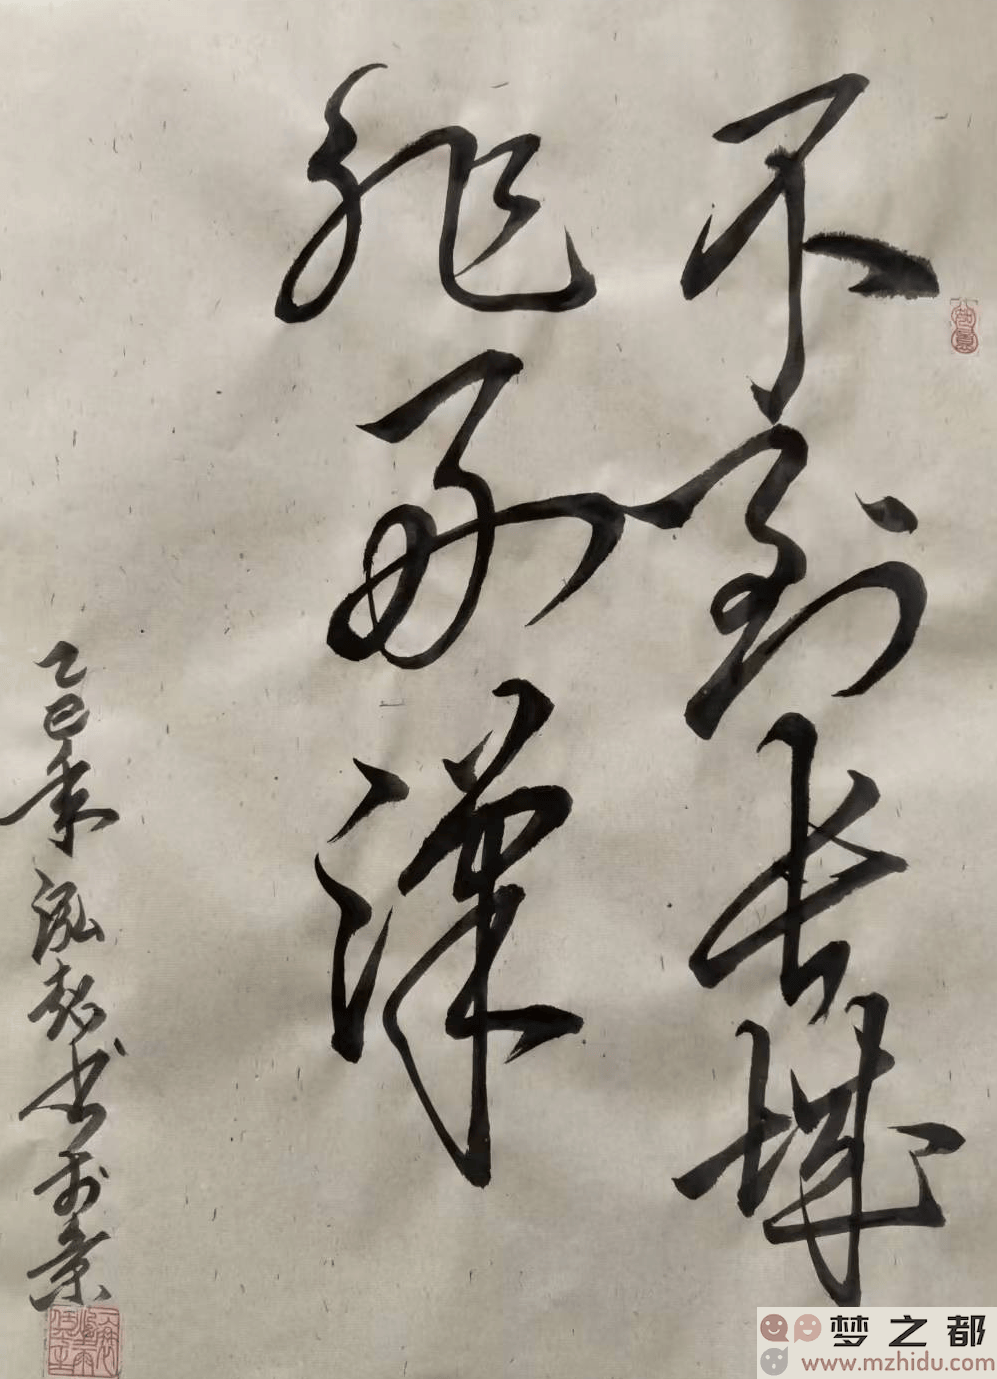 不到长城
非好汉
乙巳年泓超书于京
梦之都
www.mzhidu.com